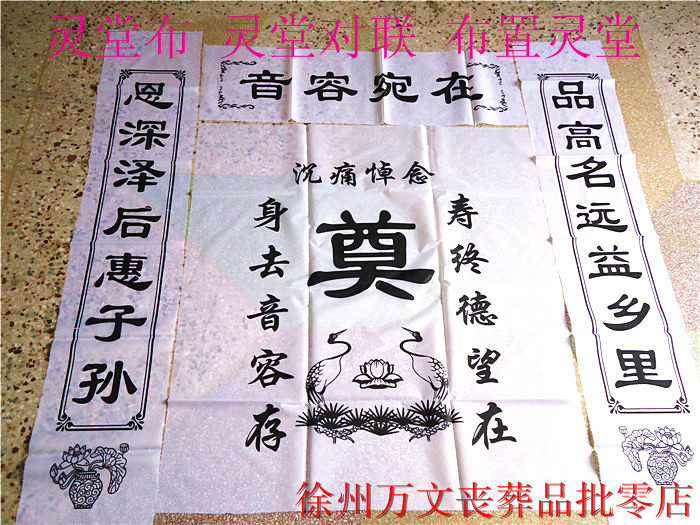 灵堂布 灵堂对联 布置灵堂
音容宛在
品高名远益乡里
恩深泽后惠子孙
沉痛悼念
奠
寿终德望在
身去音容存
徐州万文丧葬品批零店